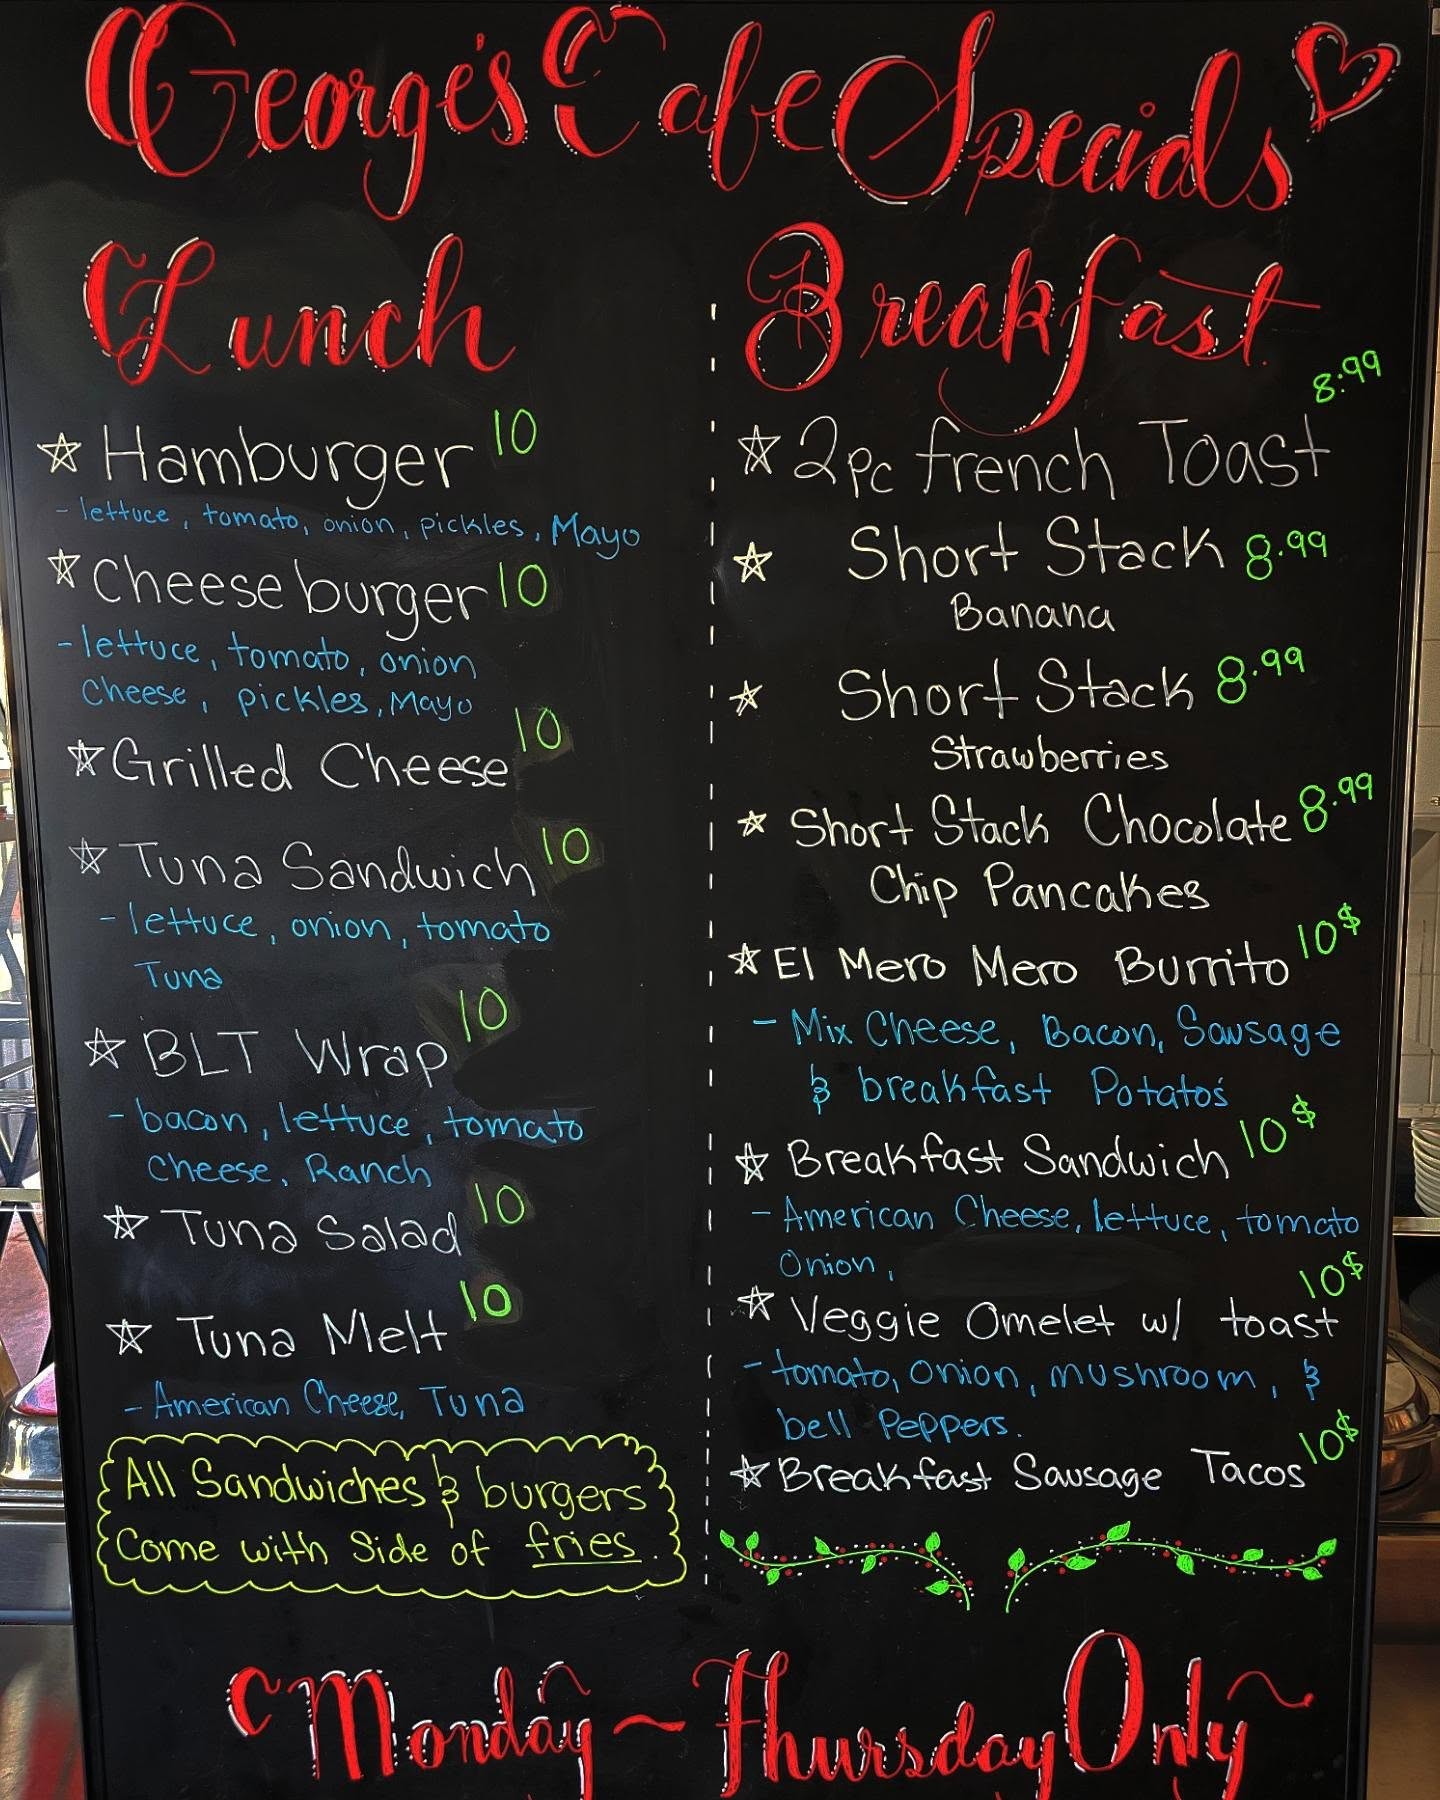 George's Cafe Specials
Lunch
Hamburger 10
- lettuce, tomato, onion, pickles, Mayo
Cheeseburger 10
- lettuce, tomato, onion
Cheese, pickles, Mayo
Grilled Cheese 10
Tuna Sandwich 10
- lettuce, onion, tomato
Tuna
BLT Wrap 10
- bacon, lettuce, tomato
Cheese, Ranch
Tuna Salad 10
Tuna Melt 10
- American Cheese, Tuna
All Sandwiches & burgers
Come with Side of fries.
Breakfast
2pc french Toast 8.99
Short Stack 8.99
Banana
Short Stack 8.99
Strawberries
Short Stack Chocolate 8.99
Chip Pancakes
El Mero Mero Burrito 10$
- Mix Cheese, Bacon, Sausage
& breakfast Potato's
Breakfast Sandwich 10$
- American Cheese, lettuce, tomato
Onion,
Veggie Omelet w/ toast 10$
- tomato, onion, mushroom, &
bell Peppers.
Breakfast Sausage Tacos 10$
Monday ~ Thursday Only